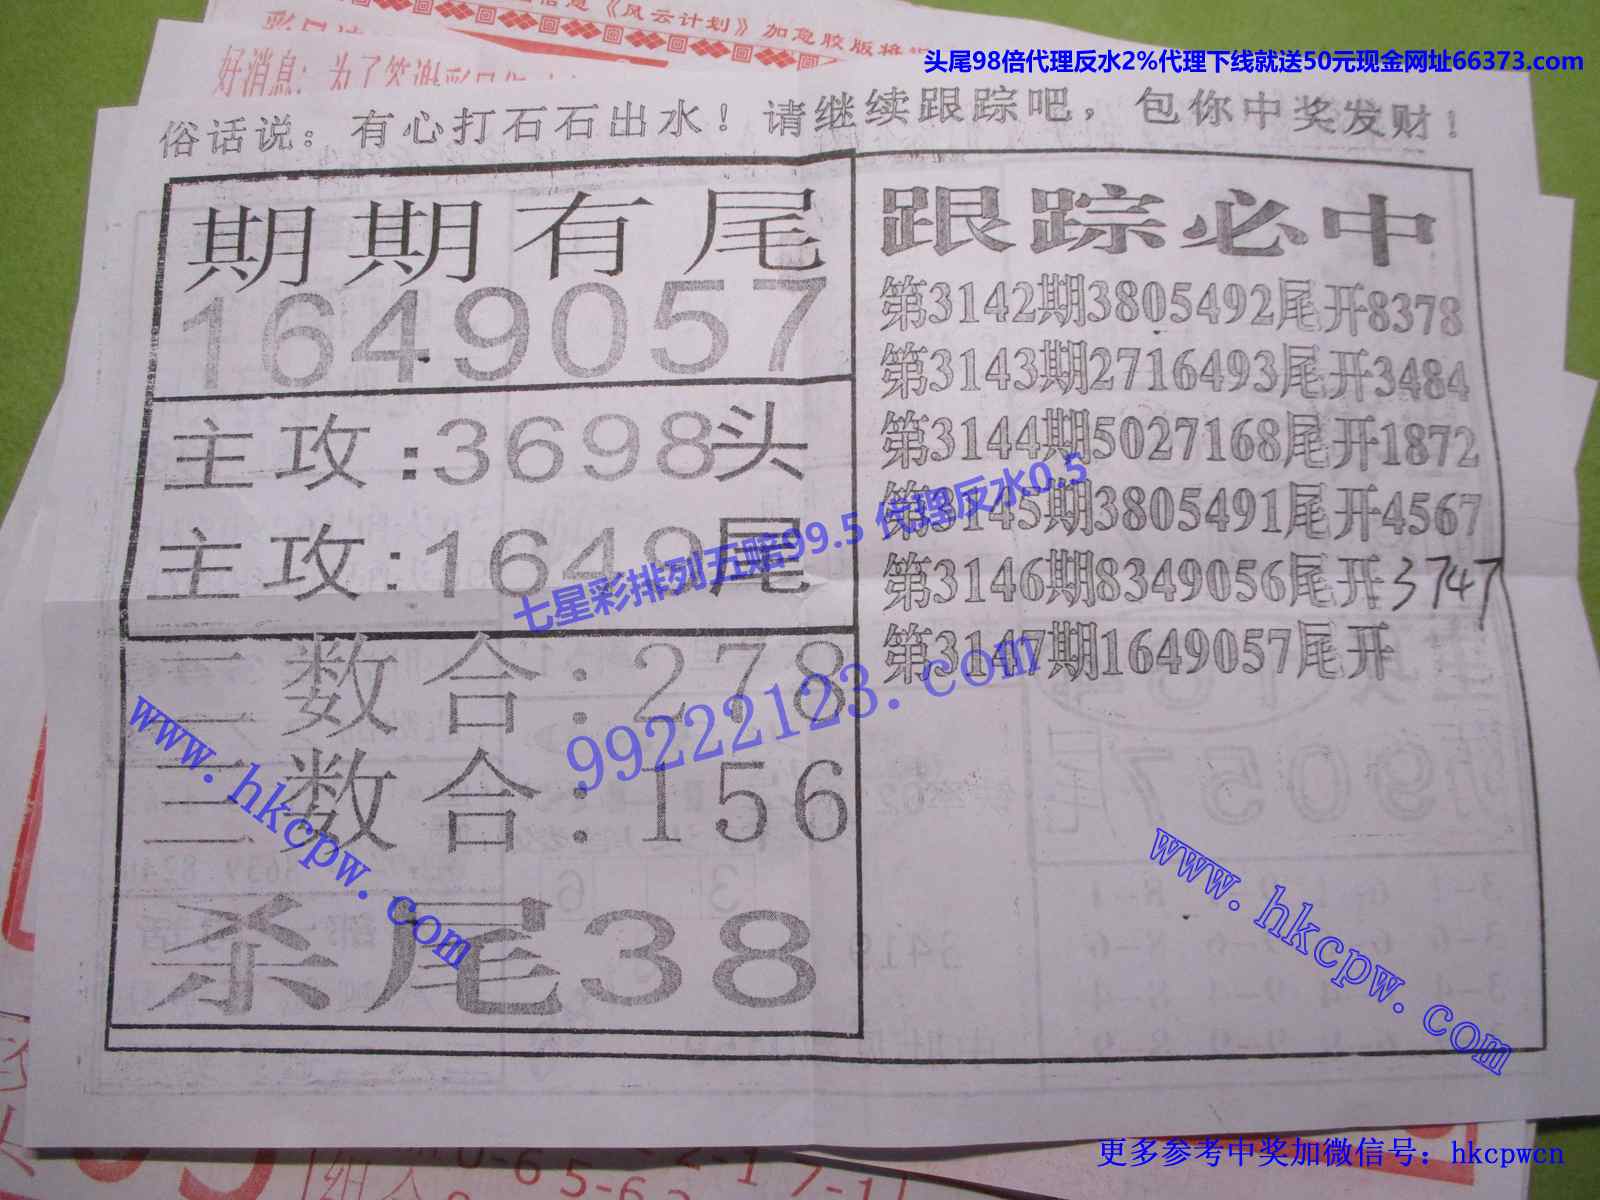 信息《风云计划》加急胶版将
好消息：为了答谢彩民
头尾98倍代理反水2%代理下线就送50元现金网址66373.com
俗话说：有心打石石出水！请继续跟踪吧，包你中奖发财！
期期有尾
1649057
主攻:3698头
主攻:1649尾
二数合:278
三数合:156
杀尾38
跟踪必中
第3142期3805492尾开8378
第3143期2716493尾开3484
第3144期5027168尾开1872
第3145期3805491尾开4567
第3146期8349056尾开3747
第3147期1649057尾开
七星彩排列五赔99.5 代理反水0.5
99222123.com
www.hkcpw.com
www.hkcpw.com
更多参考中奖加微信号：hkcpwcn